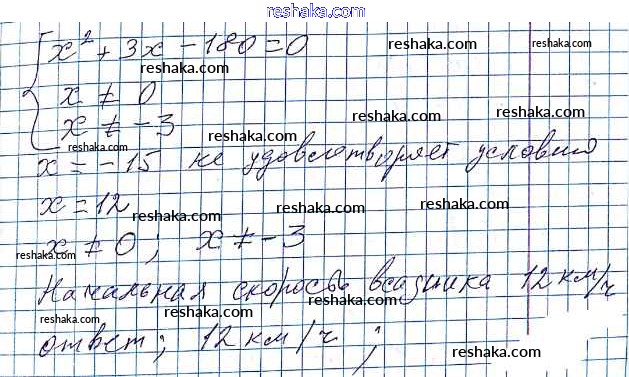 reshaka.com
x² + 3x - 180 = 0
reshaka.com reshaka.com
x ≠ 0
reshaka.com reshaka.com
x ≠ -3
reshaka.com reshaka.com
x = -15 не удовлетворяет условию
x = 12
reshaka.com reshaka.com reshaka.com
x ≠ 0; x ≠ -3
reshaka.com reshaka.com reshaka.com
Начальная скорость всадника 12 км/ч
reshaka.com reshaka.com reshaka.com
ответ; 12 км/ч;
reshaka.com reshaka.com reshaka.com